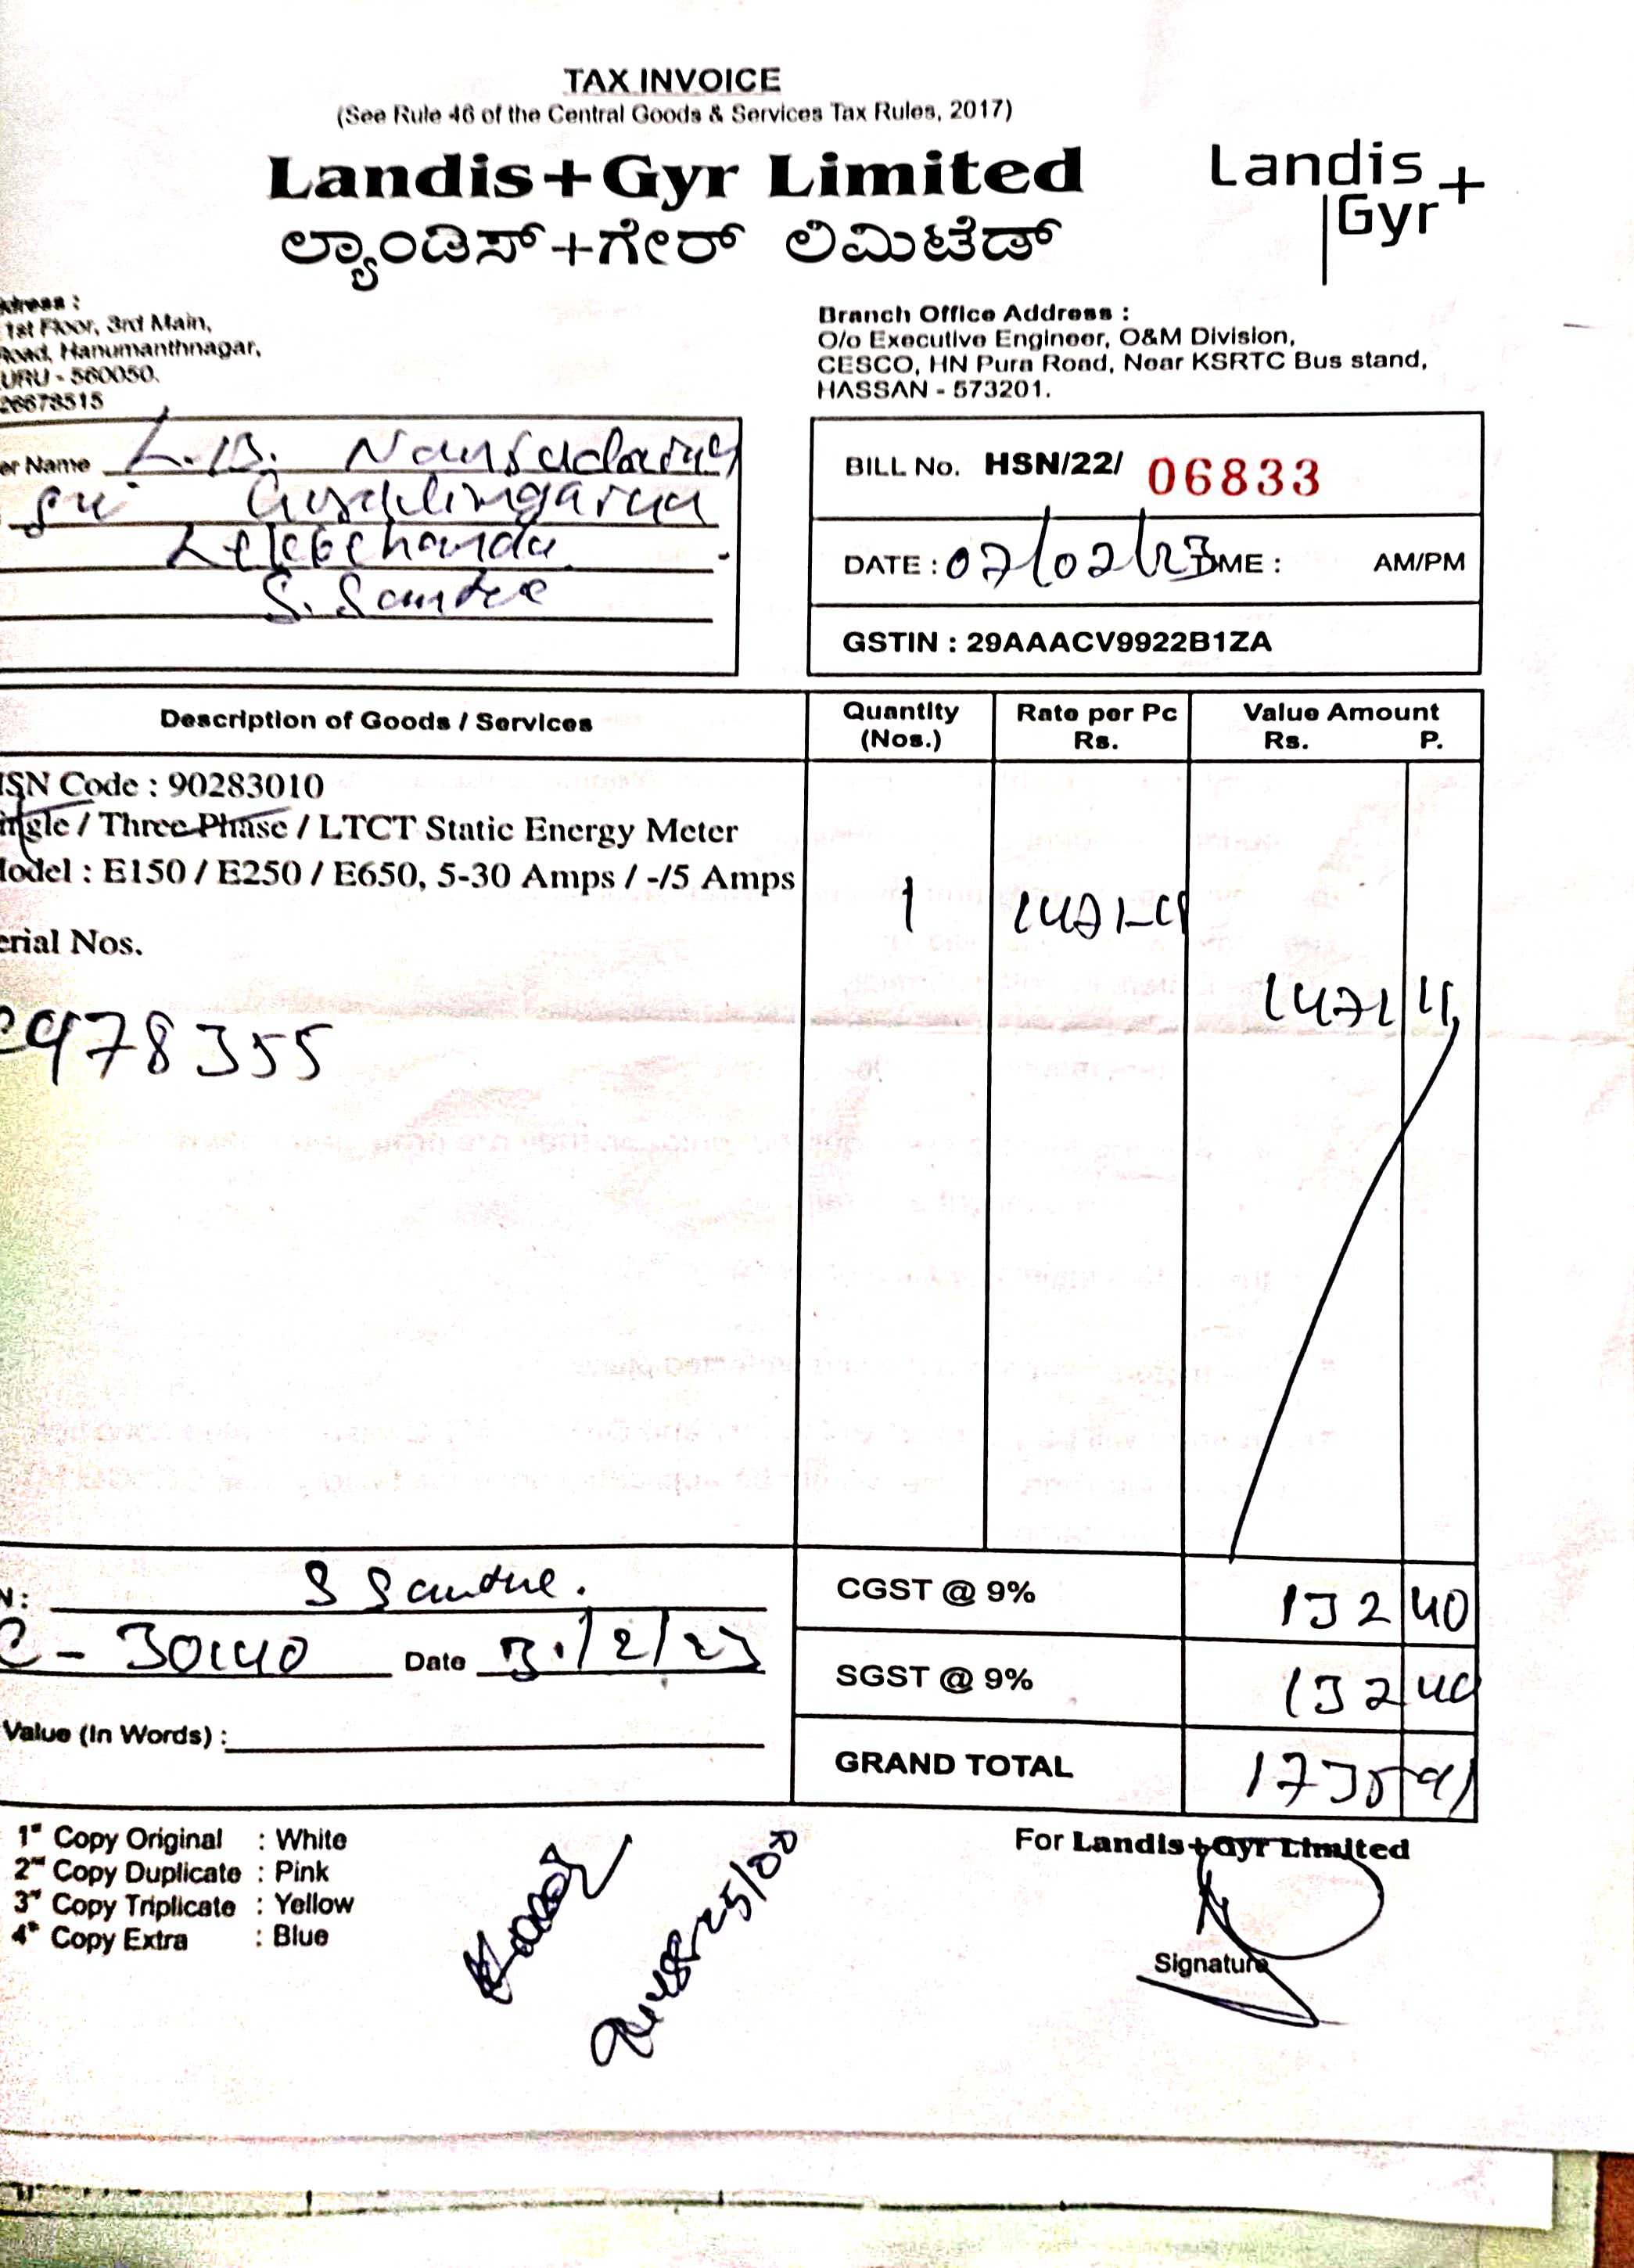 TAX INVOICE
(See Rule 46 of the Central Goods & Services Tax Rules, 2017)
Landis+Gyr Limited
ಲ್ಯಾಂಡಿಸ್+ಗೇರ್ ಲಿಮಿಟೆಡ್
Landis
Gyr+
dress :
1st Floor, 3rd Main,
Road, Hanumanthnagar,
URU - 560050.
26678515
Branch Office Address :
O/o Executive Engineer, O&M Division,
CESCO, HN Pura Road, Near KSRTC Bus stand,
HASSAN - 573201.
er Name L.B.
BILL No. HSN/22/ 06833
DATE : 07/02/23 TIME : AM/PM
GSTIN : 29AAACV9922B1ZA
Description of Goods / Services
Quantity (Nos.)
Rate per Pc Rs.
Value Amount Rs. P.
SN Code : 90283010
ingle / Three Phase / LTCT Static Energy Meter
Model : E150 / E250 / E650, 5-30 Amps / -/5 Amps
1
erial Nos.
1471 11
978355
N:
CGST @ 9% 132 40
Date 3.12/23
SGST @ 9% 132 40
Value (In Words) :
GRAND TOTAL 1735 91
1st Copy Original : White
2nd Copy Duplicate : Pink
3rd Copy Triplicate : Yellow
4th Copy Extra : Blue
For Landis+Gyr Limited
Signature